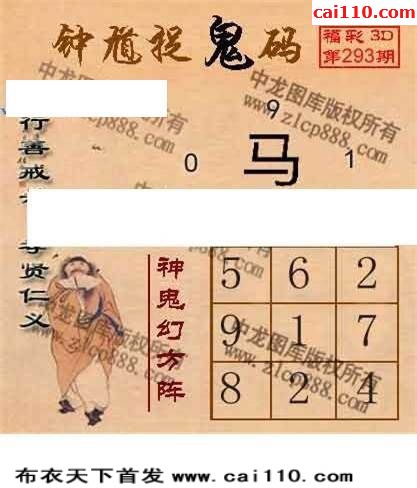 cai110.com
钟馗捉鬼码
福彩3D
第293期
中龙图库版权所有
www.zlcp888.com
9
0 马 1
行善戒
孝贤仁义
神鬼幻方阵
5 6 2
9 1 7
8 2 4
中龙图库版权所有
www.zlcp888.com
布衣天下首发 www.cai110.com